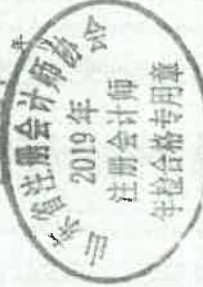 山东省注册会计师协会
2019年
注册会计师
年检合格专用章
年